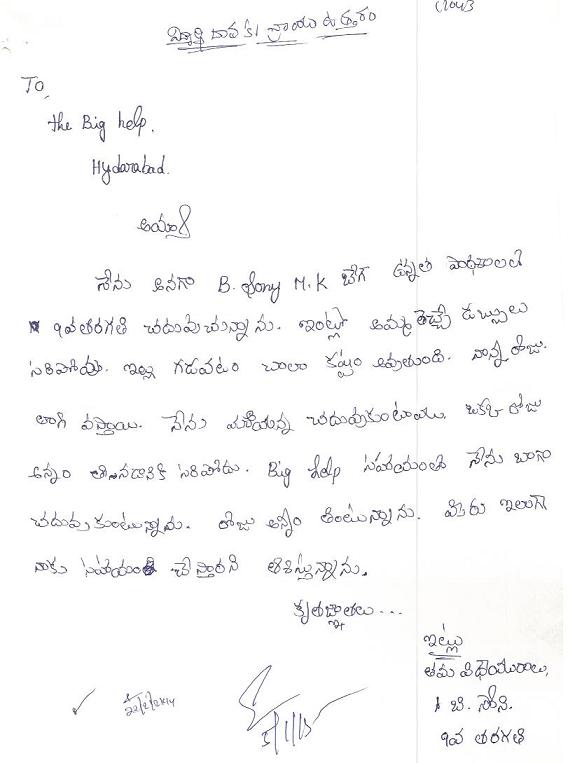 విద్యార్థి దావకు వ్రాయు ఉత్తరం
To,
the Big help,
Hyderabad.
అయ్యా
నేను అనగా B. Sony M.K ఉన్నత పాఠశాలలో
9వతరగతి చదువుచున్నాను. ఇంట్లో అమ్మ తెచ్చే డబ్బులు
సరిపోవు. ఇల్లు గడువటం చాలా కష్టం అవుతుంది. నాన్న రోజు
త్రాగి వస్తాయి. నేను చదువుకుంటాము. ఒకొక రోజు
అన్నం తినడానికి సరిపోదు. Big help సహాయంతో నేను బాగా
చదువుకుంటున్నాను. రోజు అన్నం తింటున్నాను. మీరు ఇలాగా
నాకు సహాయం చేస్తారని ఆశిస్తున్నాను.
కృతజ్ఞాతలు...
ఇట్లు
తమ విధేయురాలు,
బి. సోని.
9వ తరగతి